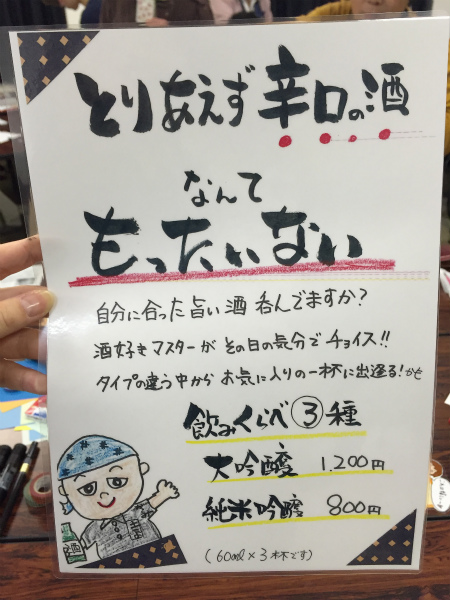 とりあえず辛口の酒
なんて
もったいない
自分に合った旨い酒 呑んでますか?
酒好きマスターが その日の気分で チョイス!!
タイプの違う中から お気に入りの一杯に出逢える!かも
飲みくらべ ③種
大吟醸 1,200円
純米吟醸 800円
(60ml×3杯です)
酒